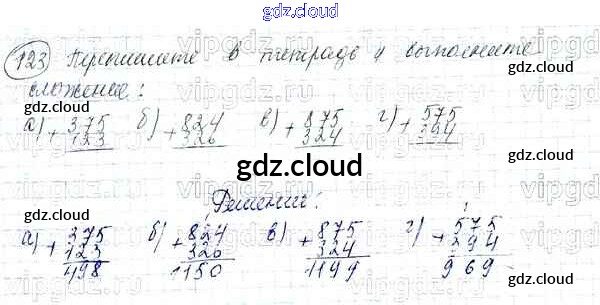 gdz.cloud
123 Перепишите в тетрадь и выполните
сложение:
gdz.cloud gdz.cloud gdz.cloud
а) + 375 б) + 824 в) + 875 г) + 575
123 326 324 394
gdz.cloud
gdz.cloud Решение: gdz.cloud
а) + 375 б) + 824 в) + 875 г) + 575
123 326 324 394
498 1150 1199 969
gdz.cloud gdz.cloud gdz.cloud